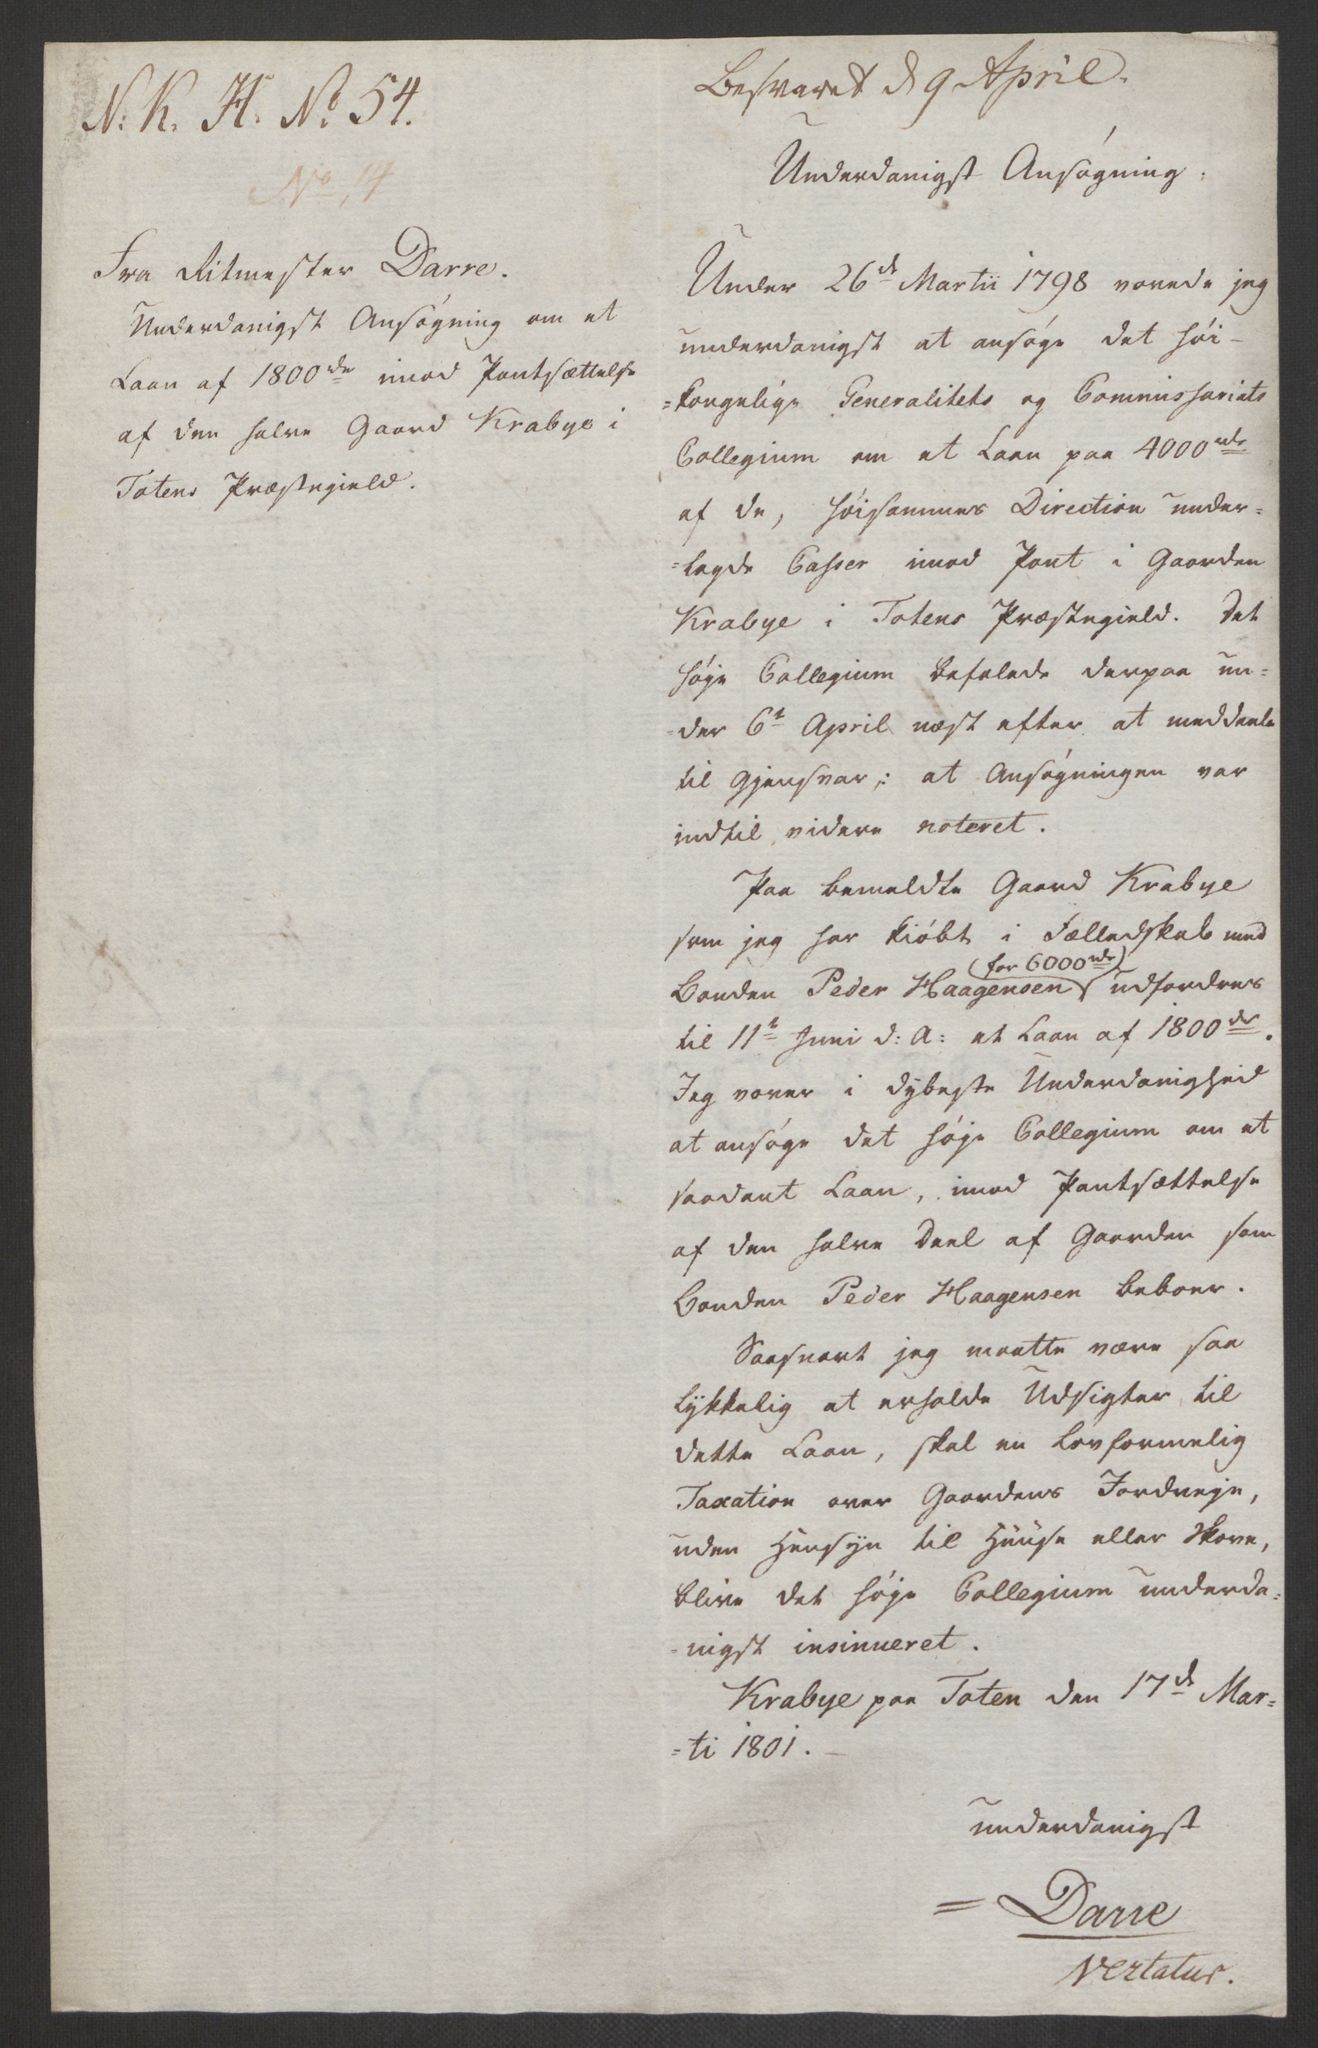 N. K. H. No 54.
No. 14
Fra Ritmester Darre.
Underdanigst Ansøgning om et
Laan af 1800 rdr imod Pantsættelse
af den halve Gaard Krabye i
Totens Præstegield.
Besvaret d 9 April.
Underdanigst Ansøgning.
Under 26d Martii 1798 vovede jeg
underdanigst at ansøge det høi-
=kongelige Generalitets og Commissariats
Collegium om et Laan paa 4000 rdr
af de, høisammes Direction under=
=lagde Casser imod Pant i Gaarden
Krabye i Totens Præstegield. Det
høje Collegium befalede derpaa un=
=der 6t April næst efter at meddeele
til Gjensvar: at Ansøgningen var
indtil videre noteret.
Paa bemeldte Gaard Krabye
som jeg har kiøbt i Fælledskab med
(for 6000 rdr)
Bonden Peder Haagensen udfordres
til 11t Juni d: A: et Laan af 1800 rdr.
Jeg vover i dybeste Underdanighed
at ansøge det høje Collegium om et
saadant Laan, imod Pantsættelse
af den halve Deel af Gaarden som
Bonden Peder Haagensen beboer.
Saasnart jeg maatte være saa
lykkelig at erholde Udsigter til
dette Laan, skal en lovformelig
Taxation over Gaardens Jordveje,
uden Hensyn til Huuse eller Skove,
blive det høje Collegium underda=
=nigst insinueret.
Krabye paa Toten den 17d Mar=
=ti 1801.
underdanigst
= Darre
Vertatur.